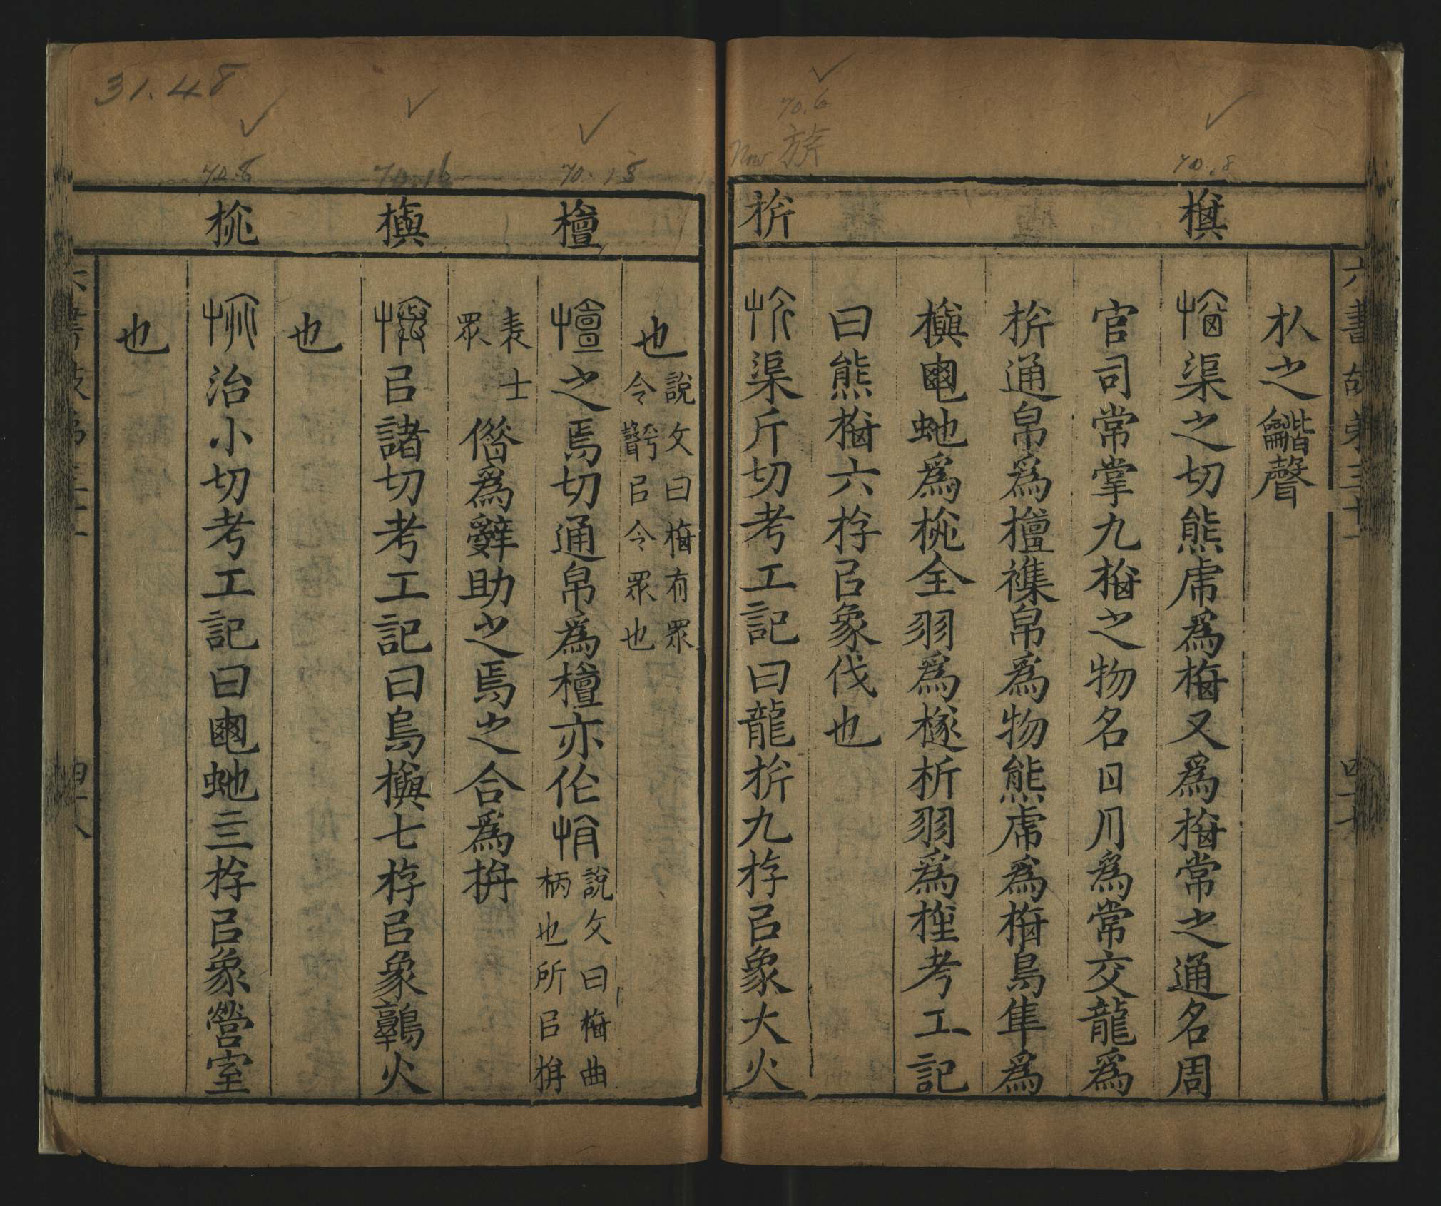 31.48
70.8
70.6
New 族
70.15
70.16
70.8
㫃之龤聲
渠之切熊虎爲旗又爲旗常之通名周
官司常掌九旗之物名日月爲常交龍爲
旂通帛爲旜襍帛爲物熊虎爲旗鳥隼爲
旟龜蛇爲旐全羽爲旞析羽爲旌考工記
曰熊旗六斿㠯象伐也
旂
渠斤切考工記曰龍旂九斿㠯象大火
也說文曰旗有眾
令㠯令眾也
旜
之焉切通帛爲旜亦作
說文曰旗曲
柄也所㠯旃
表士
眾
僭爲辭助之焉之合爲旃
旟
㠯諸切考工記曰鳥旟七斿㠯象鶉火
也
旐
治小切考工記曰龜蛇三斿㠯象營室
也